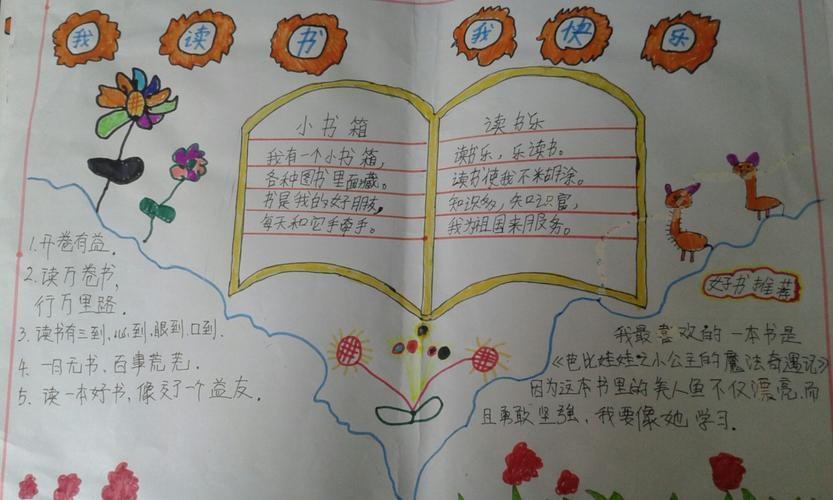 我读书我快乐
小书箱
我有一个小书箱，
各种图书里面藏。
书是我的好朋友，
每天和它手牵手。
读书乐
读书乐，乐读书。
读书使我不糊涂。
知识多，知识富，
我为祖国来服务。
1.开卷有益。
2.读万卷书，
行万里路。
3.读书有三到，心到，眼到，口到。
4.一日无书，百事荒芜。
5.读一本好书，像交了一个益友。
好书推荐
我最喜欢的一本书是
《芭比娃娃之小公主的魔法奇遇记》
因为这本书里的美人鱼不仅漂亮，而
且勇敢坚强，我要像她学习。